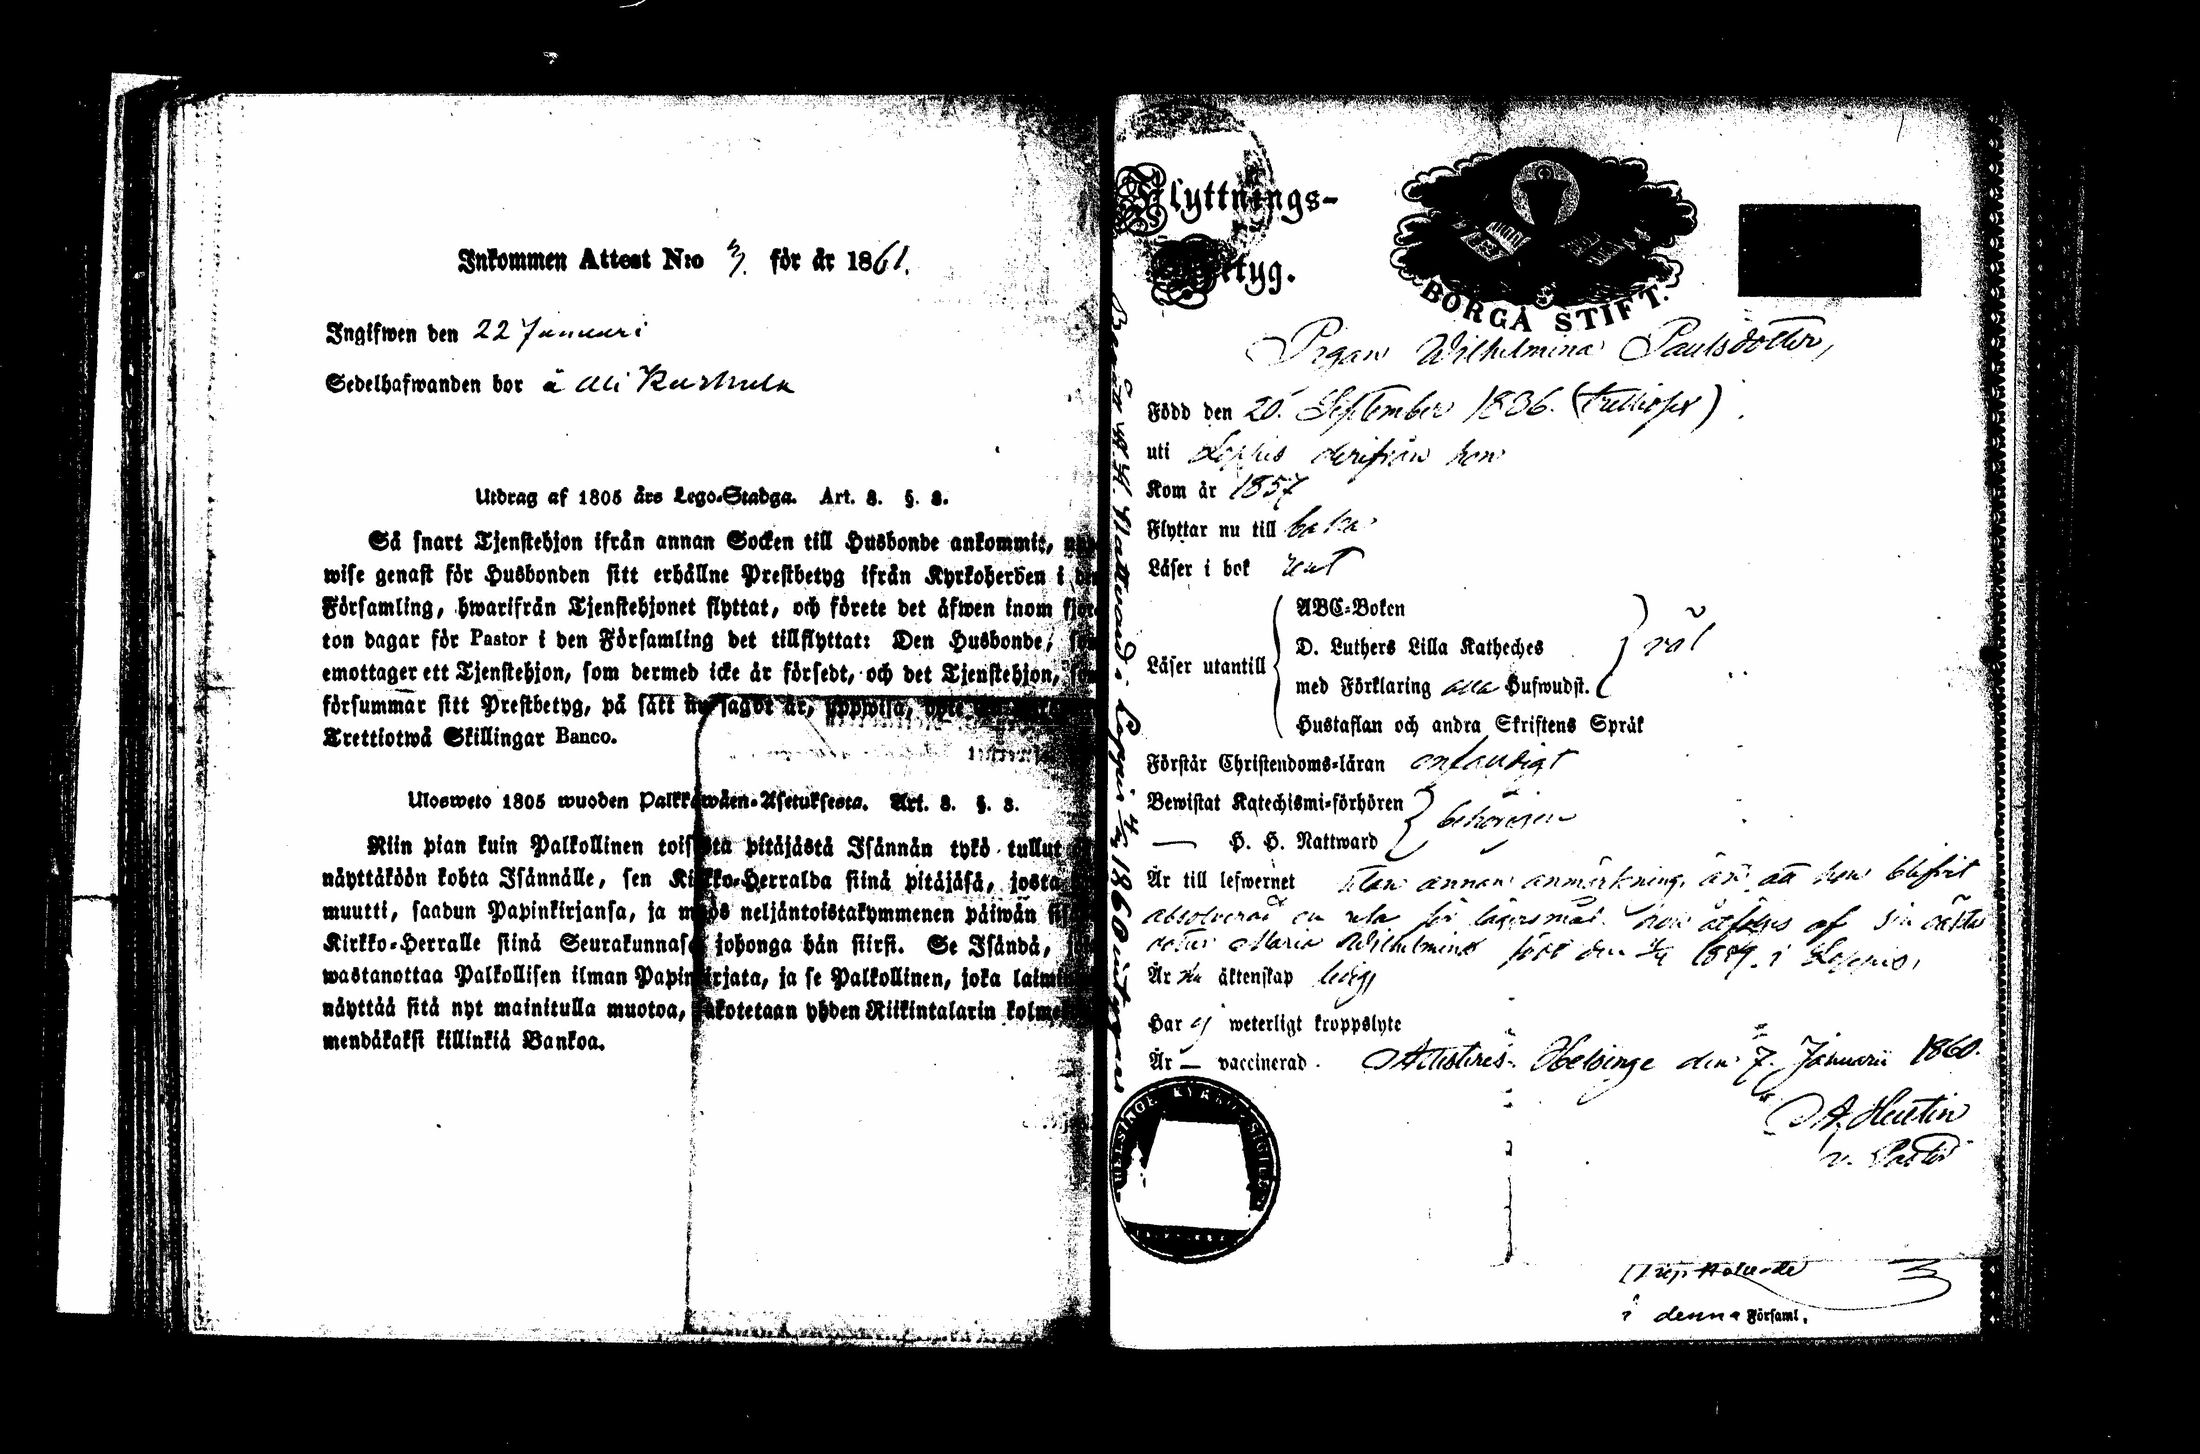 Inkommen Attest N:o 3. för år 1861.
Ingifwen den 22 Januari
Sedelhafwanden bor å
Utdrag af 1805 års Lego-Stadga. Art. 8. §. 8.
Så snart Tjenstehjon ifrån annan Socken till Husbonde ankommit,
wise genast för Husbonden sitt erhållne Prestbetyg ifrån Kyrkoherden i
Församling, hwarifrån Tjenstehjonet flyttat, och förete det äfwen inom
ton dagar för Pastor i den Församling det tillflyttat: Den Husbonde,
emottager ett Tjenstehjon, som dermed icke är försedt, och det Tjenstehjon,
försummar sitt Prestbetyg, på sätt nu sagdt är, uppwisa,
Trettiotwå Skillingar Banco.
Ulosweto 1805 wuoden Palkkawäen-Asetuksesta. Art. 8. §. 8.
Niin pian kuin Palkollinen toisesta pitäjästä Isännän tykö tullut
näyttäköön kohta Isännälle, sen Kirkko-Herralda siinä pitäjäsä, josta
muutti, saadun Papinkirjansa, ja myös neljäntoistakymmenen päiwän
Kirkko-Herralle siinä Seurakunnasa johonga hän siirsi. Se Isändä,
wastanottaa Palkollisen ilman Papinkirjata, ja se Palkollinen, joka
näyttää sitä nyt mainitulla muotoa, sakotetaan yhden Riikintalarin
mendäkaksi killinkiä Bankoa.
Flyttnings-
Betyg.
BORGÅ STIFT.
Pigan Wilhelmina Paulsdotter,
Född den 20. September 1836. (trettiosex)
uti Loppis derifrån hon
Kom år 1857
Flyttar nu till baka
Läser i bok rent
Läser utantill
ABC-Boken
D. Luthers Lilla Katheches
med Förklaring alla Hufwudst.
Hustaflan och andra Skriftens Språk
väl
Förstår Christendoms-läran enfaldigt
Bewistat Katechismi-förhören
— H. H. Nattward
behörigen
Är till lefwernet utan annan anmärkning, än att hon blifvit
absolverad en resa för lägersmål. Hon åtföljes af sin oäkta
dotter Maria Wilhelmina född den 1859. i Loppis,
Är till äktenskap ledig
Har ej weterligt kroppslyte
Är — vaccinerad. Attesteres. Helsinge den 7. Januarii 1860.
v. Pastor
HELSINGE KYRKO SIGILL
i denna Församl.